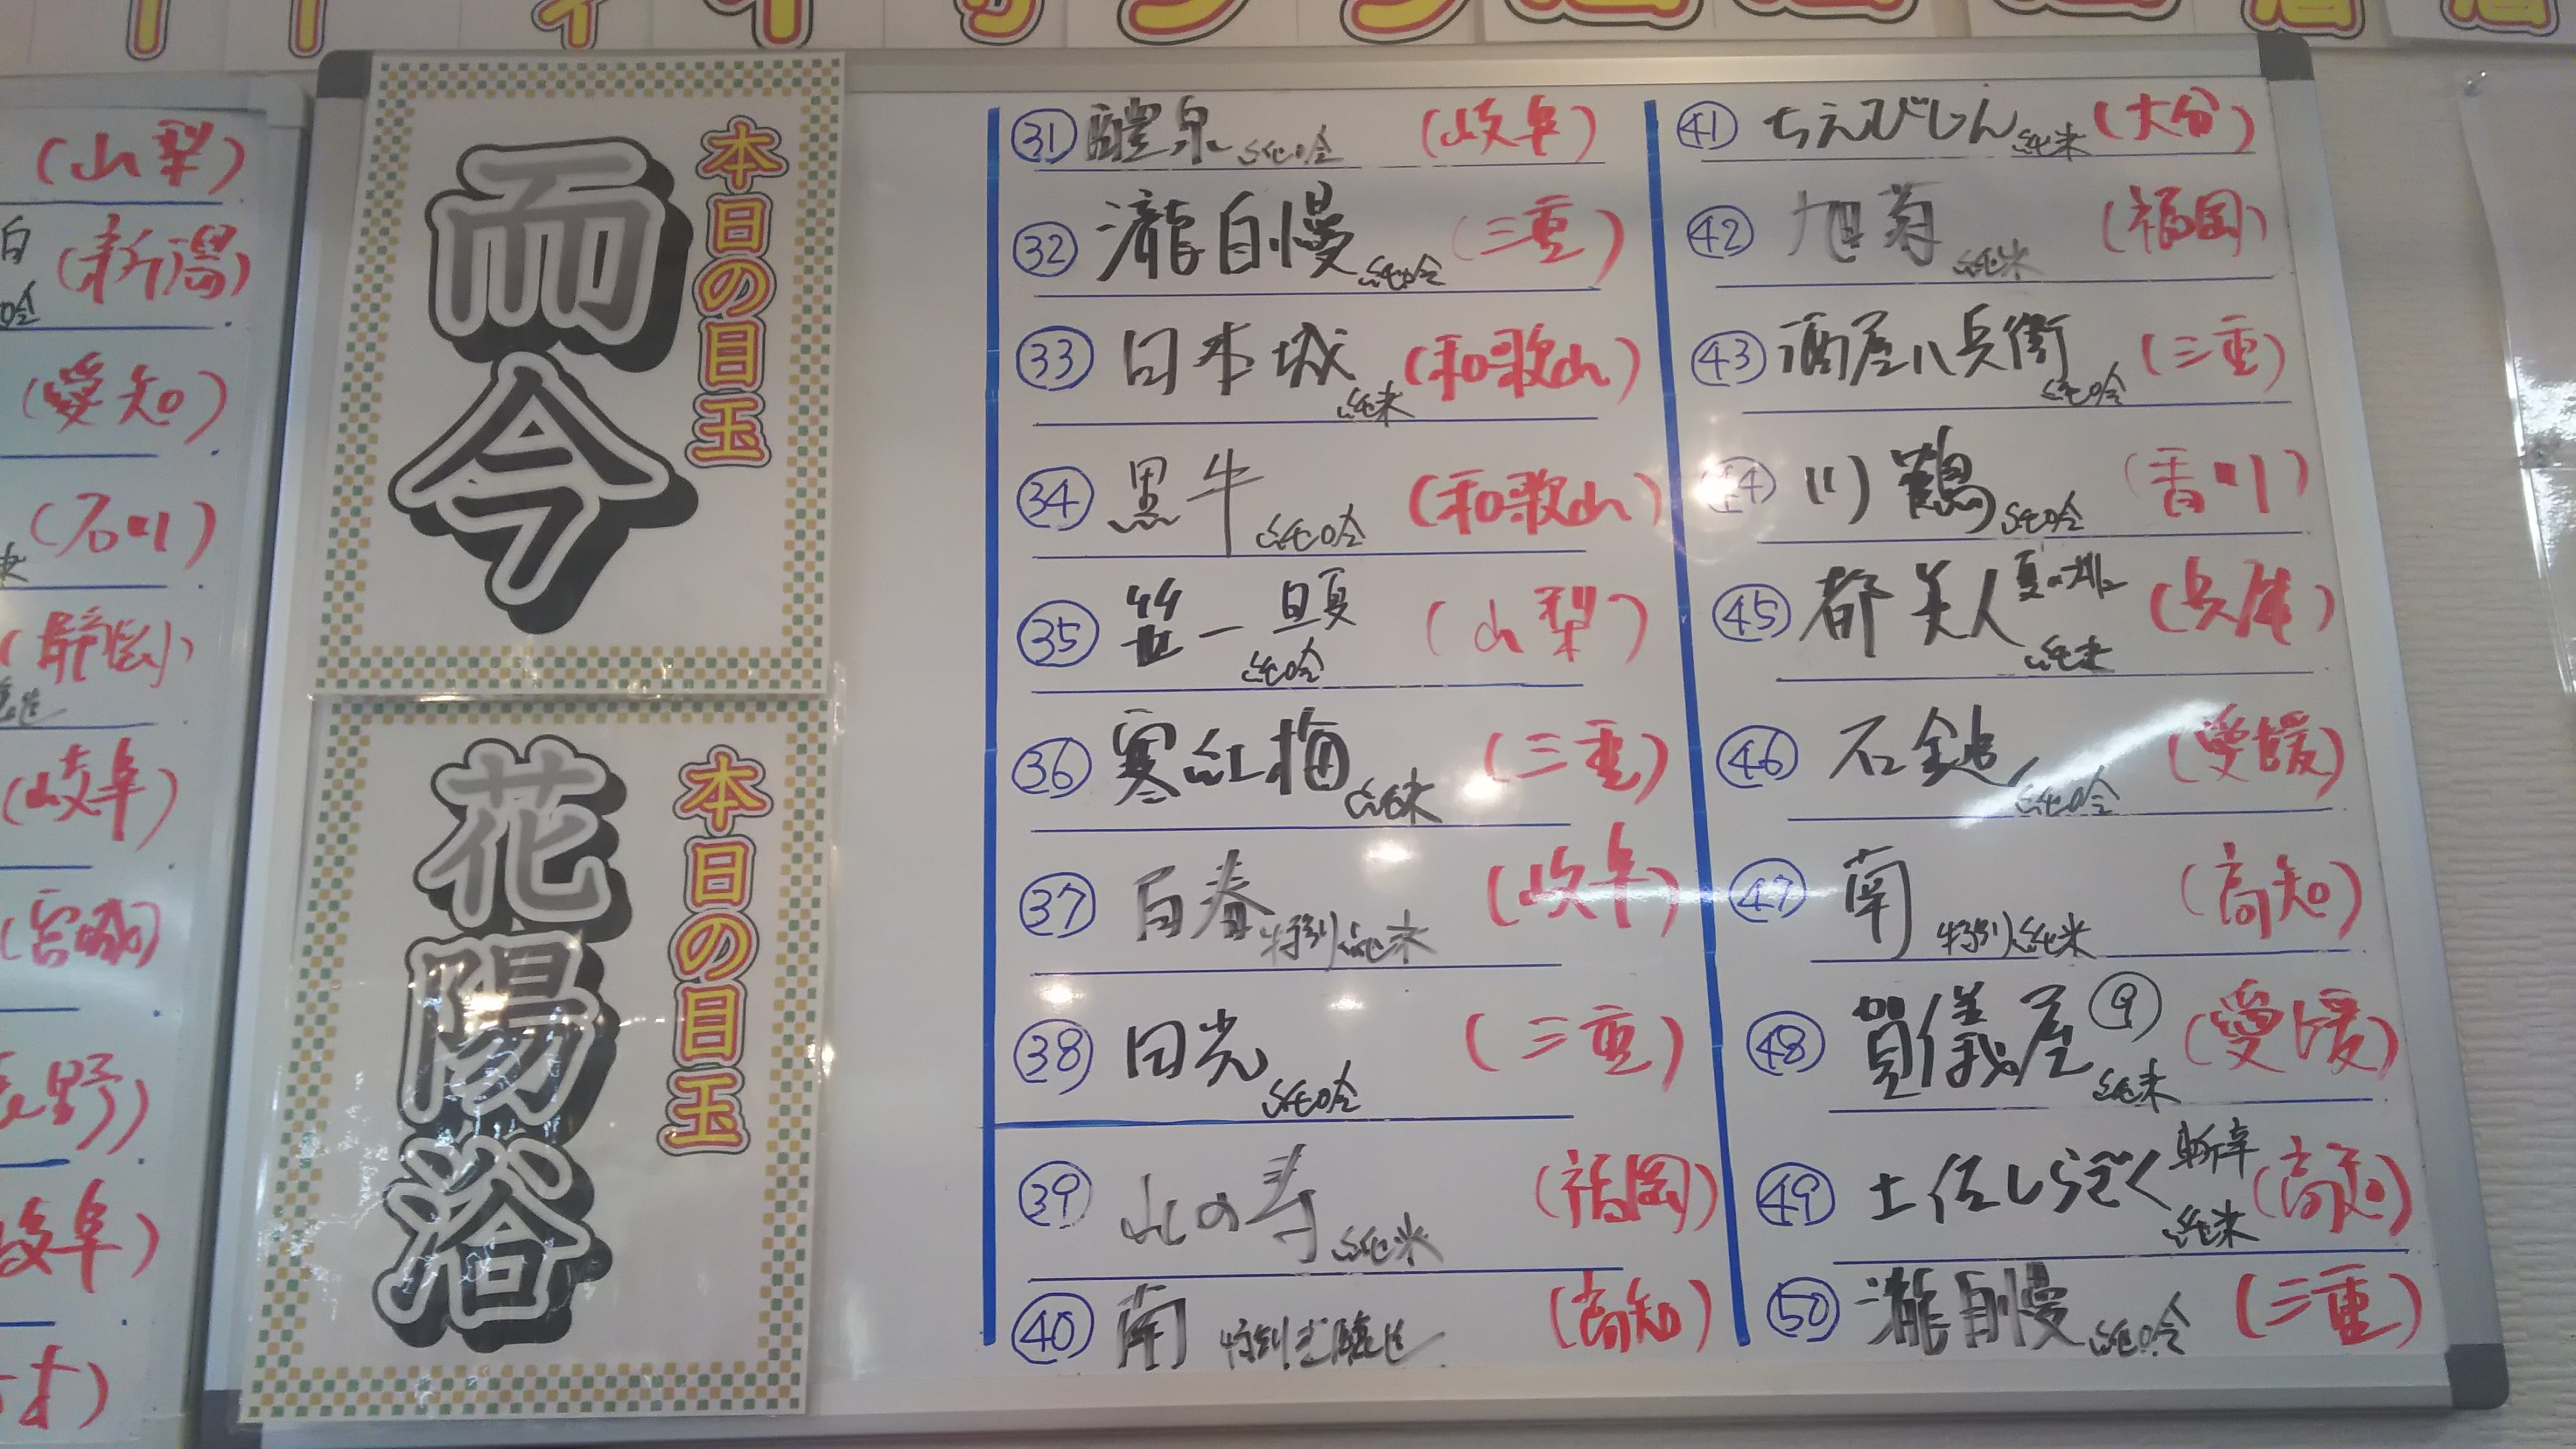 (山梨)
(新潟)
(愛知)
(石川)
(静岡)
(岐阜)
(宮城)
野)
岐阜)
本日の目玉
而今
本日の目玉
花陽浴
㉛ 醴泉 純吟 (岐阜)
㉜ 瀧自慢 純吟 (三重)
㉝ 日本城 純米 (和歌山)
㉞ 黒牛 純吟 (和歌山)
㉟ 笹一 夏 純吟 (山梨)
㊱ 寒紅梅 純米 (三重)
㊲ 百春 特別純米 (岐阜)
㊳ 日光 純吟 (三重)
㊴ 山の寿 純米 (福岡)
㊵ 南 特別本醸造 (高知)
㊶ ちえびじん 純米 (大分)
㊷ 旭菊 純米 (福岡)
㊸ 酒屋八兵衛 純吟 (三重)
㊹ 川鶴 純吟 (香川)
㊺ 都美人 夏の 純米 (兵庫)
㊻ 石鎚 純吟 (愛媛)
㊼ 南 特別純米 (高知)
㊽ 賀儀屋⑨ 純米 (愛媛)
㊾ 土佐しらぎく 斬辛 純米 (高知)
㊿ 瀧自慢 純吟 (三重)